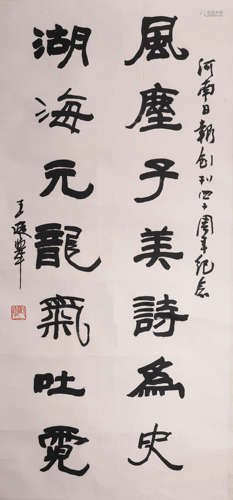 河南日報創刊四十周年紀念
風塵子美詩為史
湖海元龍氣吐霓